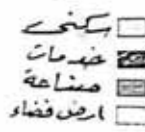 سكنى
خدمات
صناعة
ارض فضاء